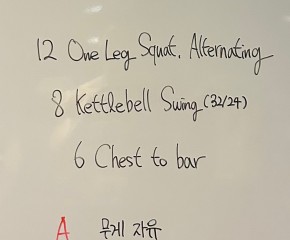 12 One Leg Squat. Alternating
8 Kettlebell Swing (32/24)
6 Chest to bar
A 무게 자유